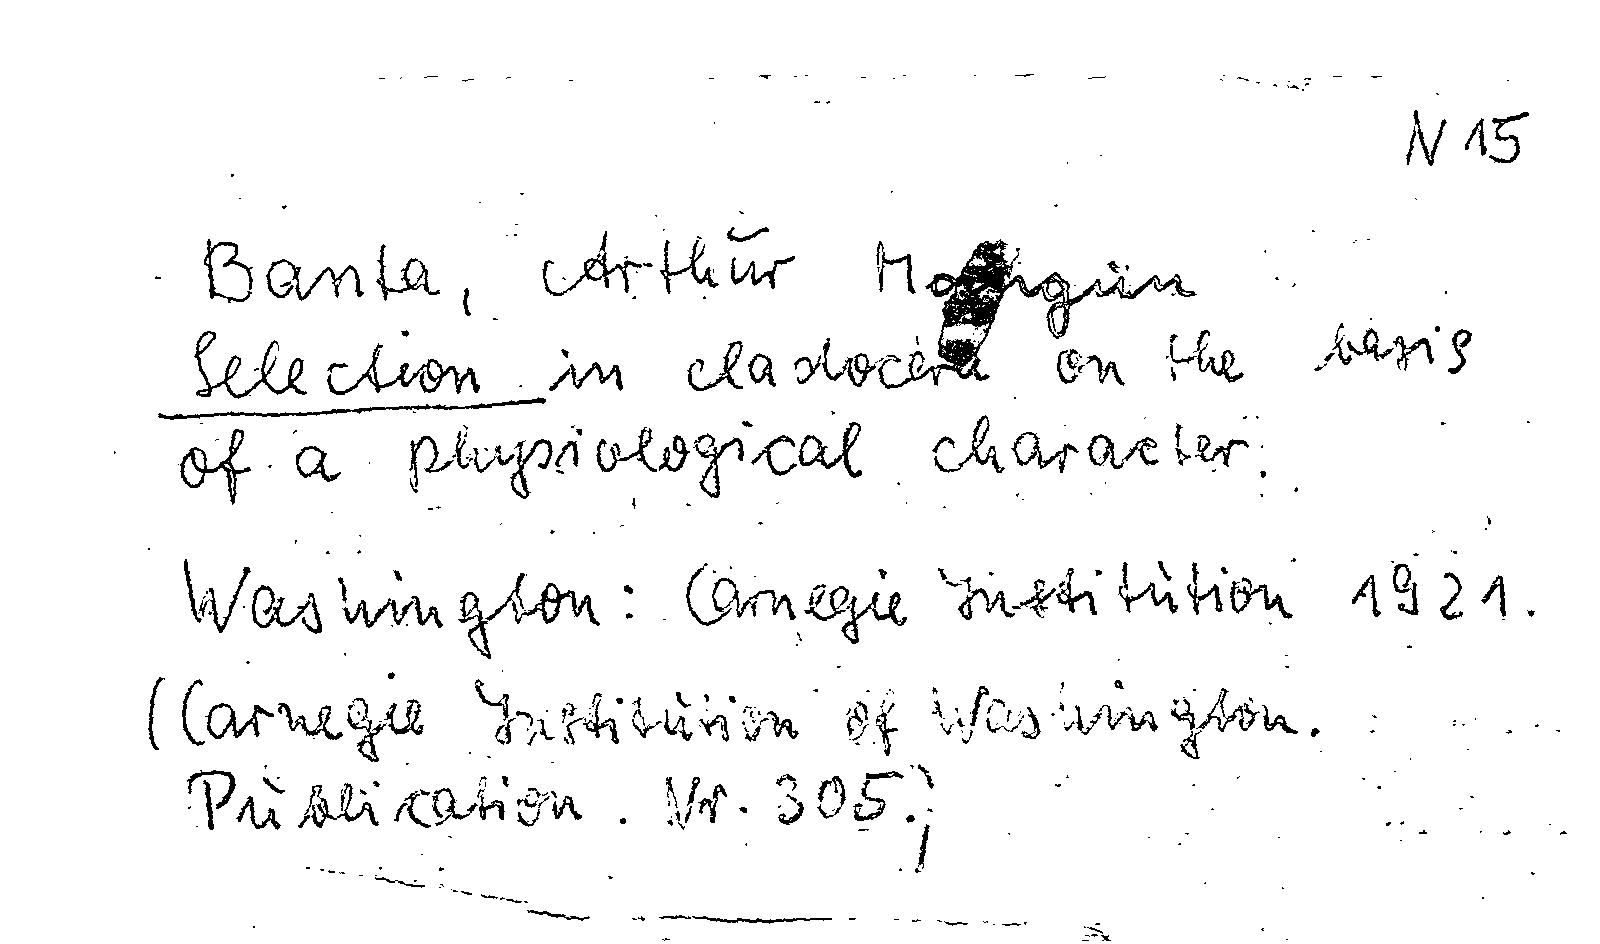 N 15
Banta, Arthur
Selection in cladocera on the basis
of a physiological character.
Washington: Carnegie Institution 1921.
(Carnegie Institution of Washington.
Publication. Nr. 305.)